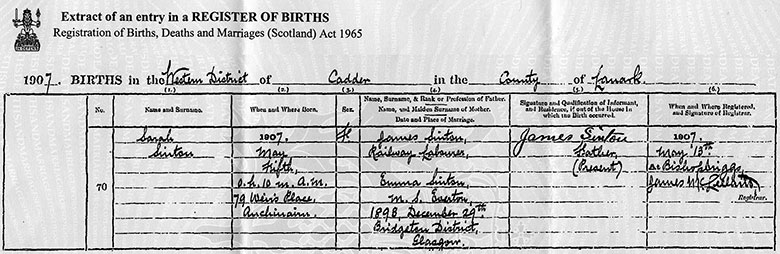 Extract of an entry in a REGISTER OF BIRTHS
Registration of Births, Deaths and Marriages (Scotland) Act 1965
1907. BIRTHS in the Western District of Cadder in the County of Lanark
(1.) (2.) (3.) (4.) (5.) (6.)
No. Name and Surname. When and Where Born. Sex. Name, Surname, & Rank or Profession of Father. Name, and Maiden Surname of Mother. Date and Place of Marriage. Signature and Qualification of Informant, and Residence, if out of the House in which the Birth occurred. When and Where Registered, and Signature of Registrar.
70
Sarah
Sinton
1907.
May
Fifth,
0 h. 10 m. A.M.
79 Weir's Place
Auchinairn.
F.
James Sinton
Railway Labourer,
Emma Sinton
M. S. Everton
1898, December 29th
Bridgeton District,
Glasgow.
James Sinton
Father
(Present)
1907.
May 13th
at Bishopbriggs
James
Registrar.